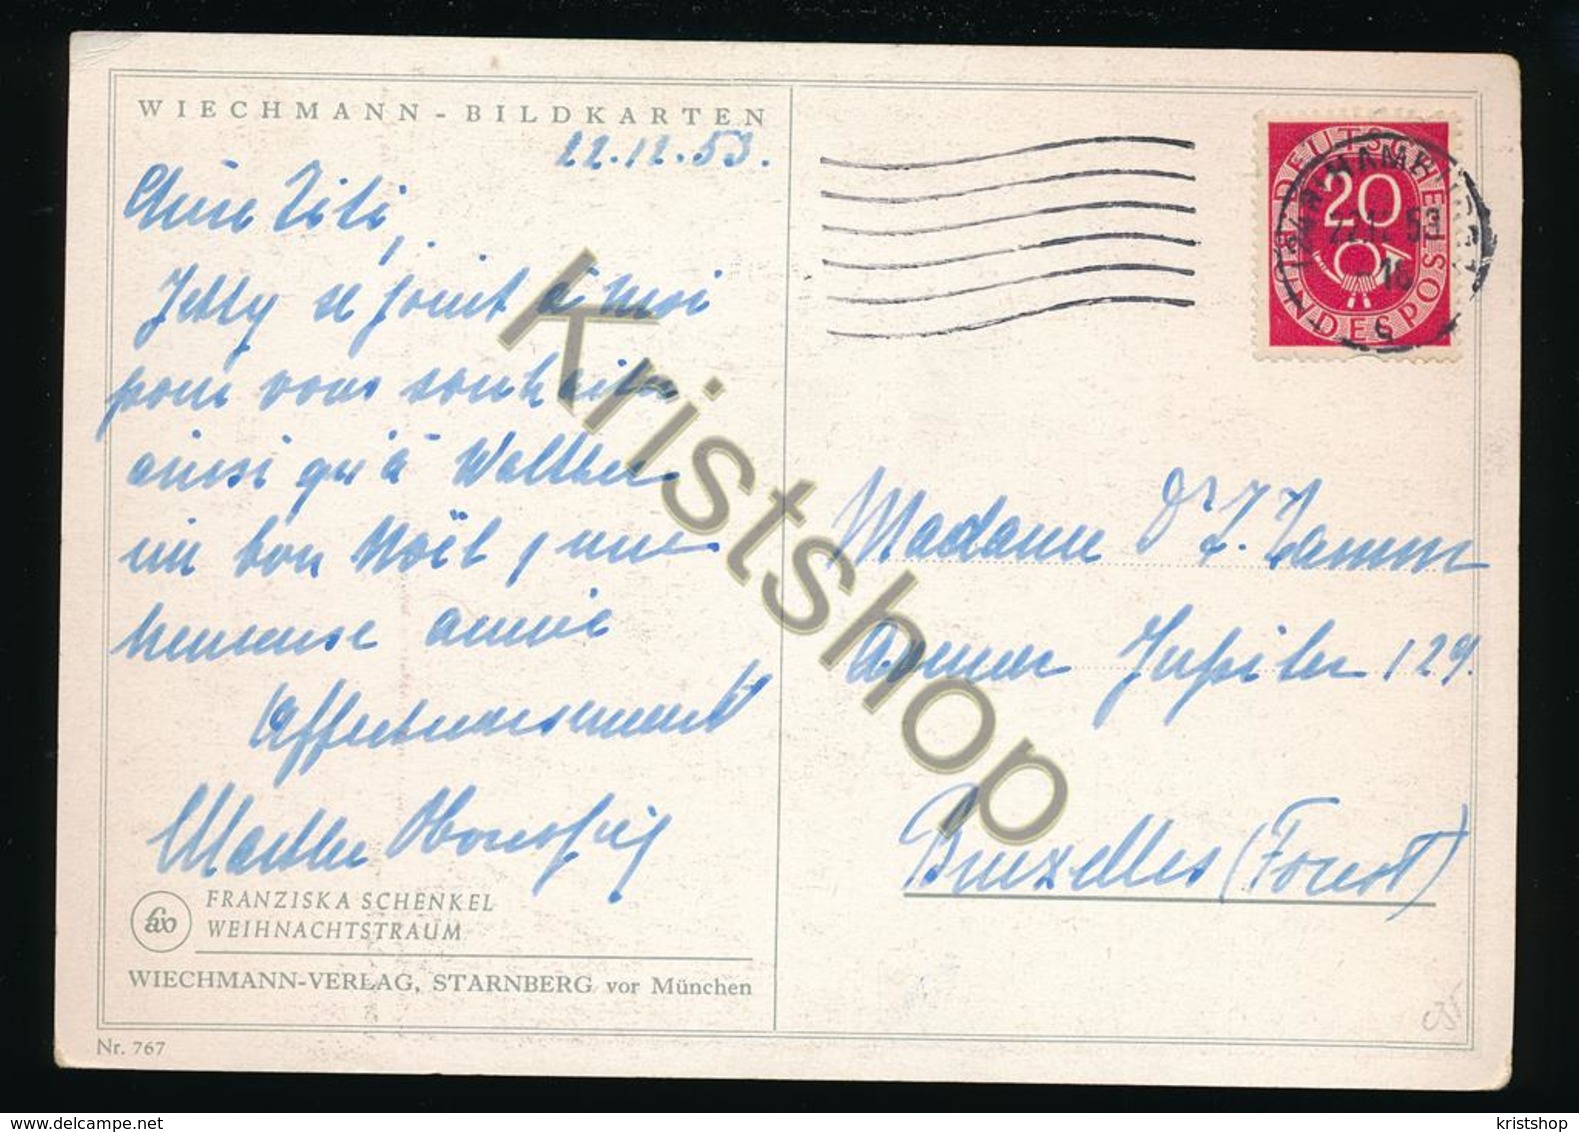 WIECHMANN - BILDKARTEN
22.12.53.
Chère Titi,
Jetty se joint à moi
pour vous souhaiter
ainsi qu'à Walther
un bon Noël, une
heureuse année
Affectueusement
Marthe
FRANZISKA SCHENKEL
WEIHNACHTSTRAUM
WIECHMANN-VERLAG, STARNBERG vor München
Nr. 767
DEUTSCHE BUNDESPOST
20
HAMBURG
53
-16
Madame Dr Z. Tamm
Avenue Jupiter 129.
Bruxelles (Forest)
Kristshop
www.delcampe.net
kristshop